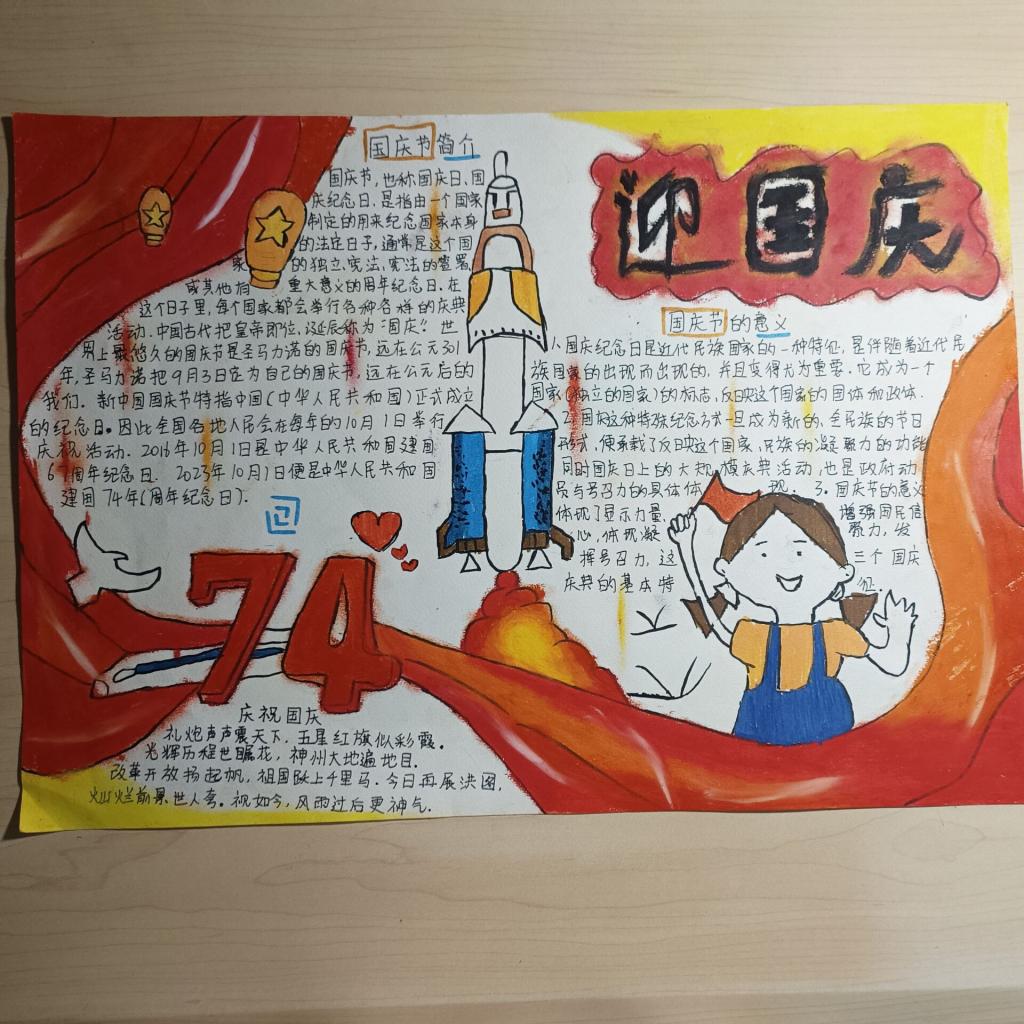 迎国庆
国庆节简介
国庆节,也称国庆日、国
庆纪念日,是指由一个国家
制定的用来纪念国家本身
的法定日子,通常是这个国
家的独立、宪法、宪法的签署,
或其他有重大意义的周年纪念日.在
这个日子里,每个国家都会举行各种各样的庆典
活动.中国古代把皇帝即位、诞辰称为“国庆”.世
界上最悠久的国庆节是圣马力诺的国庆节,远在公元301
年,圣马力诺把9月3日定为自己的国庆节.远在公元后的
我们.新中国国庆节特指中国(中华人民共和国)正式成立
的纪念日。因此全国各地人民会在每年的10月1日举行
庆祝活动.2016年10月1日是中华人民共和国建国
67周年纪念日.2023年10月1日便是中华人民共和国
建国74年(周年纪念日).
国庆节的意义
1.国庆纪念日是近代民族国家的一种特征,是伴随着近代民
族国家的出现而出现的,并且变得尤为重要.它成为一个
国家(独立的国家)的标志,反映这个国家的国体和政体.
2.国庆这种特殊纪念方式一旦成为新的、全民族的节日
形式,便承载了反映这个国家、民族的凝聚力的功能
同时国庆日上的大规模庆典活动,也是政府动
员与号召力的具体体现.3.国庆节的意义
体现了显示力量、增强国民信
心,体现凝聚力,发
挥号召力,这三个国庆
庆典的基本特征.
74
庆祝国庆
礼炮声声震天下,五星红旗似彩霞。
光辉历程世瞩花,神州大地遍地目.
改革开放扬起帆,祖国跃上千里马.今日再展洪图,
灿烂前景世人夸。视如今,风雨过后更神气.